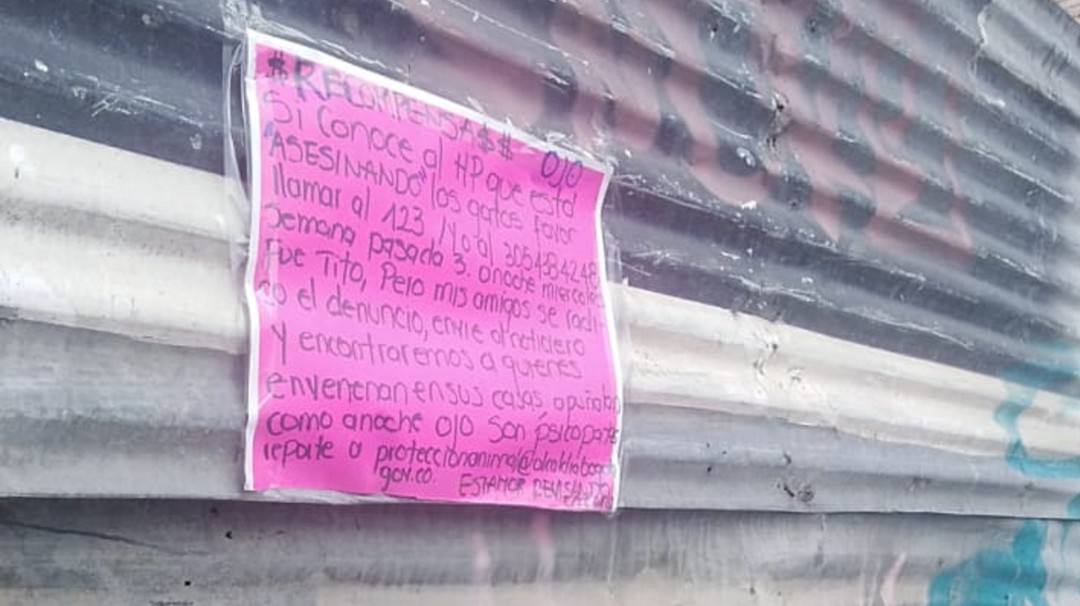 $RECOMPENSA$$ OJO
Si Conoce al HP que esta
"ASESINANDO" los gatos favor
llamar al 123, Y/o al
Semana pasada 3. anoche miercoles
Fue Tito, Pero mis amigos se radi-
co el denuncio, envie al noticiero
Y encontraremos a quienes
envenenan en sus casas, apuñalan
como anoche OJO son psicopatas
reporte a
gov.co. ESTAMOS